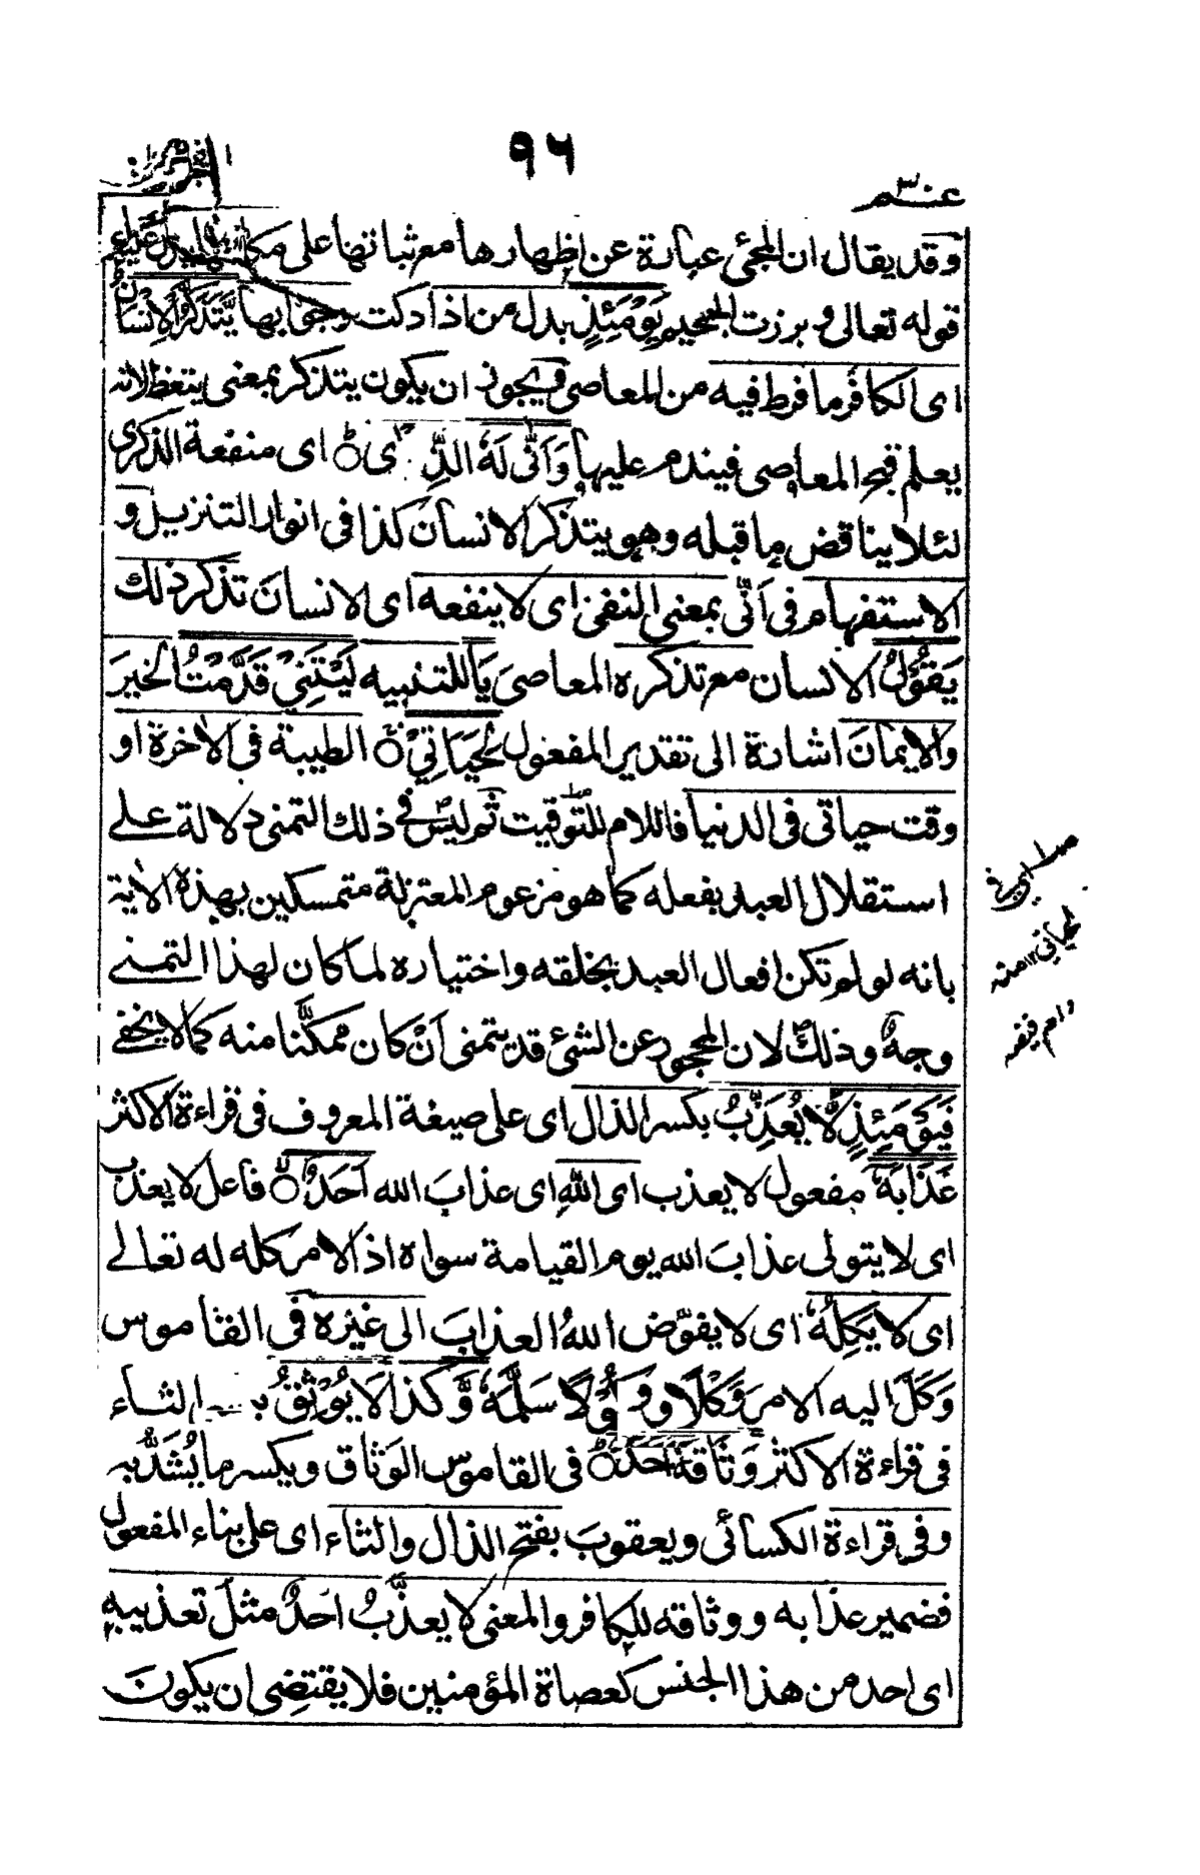 ٩٦
عم
وقد يقال ان المجئ عبارة عن اظهارها مع ثباتها على يدل عليه
قوله تعالى وبرزت الجحيم يَوْمَئِذٍ بدل من اذا دكت وجوابها يَّتَذَكَّرُ الْاِنْسَانُ
اى الكافر ما فرط فيه من المعاصى ويجوز ان يكون يتذكر بمعنى يتعظ لانه
يعلم قبح المعاصى فيندم عليها وَاَنّٰى لَهُ الذِّ ى ۝ اى منفعة الذكرى
لئلا يناقض ما قبله وهو يتذكر الانسان كذا فى انوار التنزيل و
الاستفهام فى اَنّٰى بمعنى النفى اى لا ينفعه اى الانسانَ تذكر ذلك
يَقُوْلُ الانسان مع تذكره المعاصىَ يَا للتنبيه لَيْتَنِيْ قَدَّمْتُ الخيرَ
والايمانَ اشارة الى تقدير المفعول لِحَيَاتِيْ ۝ الطيبة فى الاخرة او
وقت حياتى فى الدنيا فاللام للتوقيت ثم ليس فى ذلك التمنى دلالة على
استقلال العبد بفعله كما هو مزعوم المعتزلة متمسكين بهذه الاية
بانه لو لم تكن افعال العبد بخلقه واختياره لما كان لهذا التمنى
وجهٌ وذلك لان المحجور عن الشئ قد يتمنى اَنْ كان ممكَّنا منه كما لا يخفى
فَيَوْمَئِذٍ لَّا يُعَذِّبُ بكسر الذال اى على صيغة المعروف فى قراءة الاكثر
عَذَابَهٗ مفعول لا يعذب اى اللّٰهِ اى عذابَ الله اَحَدٌ ۝ فاعل لا يعذب
اى لا يتولى عذابَ الله يوم القيامة سواه اذ الامر كله له تعالى
اى لا يَكِلُهٗ اى لا يفوّض اللهُ العذابَ الى غيره فى القاموس
وَكَلَ اليه الامر وَكْلًا و وُكُولًا سَلَّمَهٗ وَّ كذا لَا يُوْثِقُ الثاء
فى قراءة الاكثر وَثَاقَهٗ اَحَدٌ ۝ فى القاموس الوَثاق ويكسر ما يُشَدُّ به
وفى قراءة الكسائى ويعقوبَ بفتح الذال والثاء اى على بناء المفعول
فضمير عذابه ووثاقه للكافر والمعنى لا يعذَّبُ احدٌ مثلَ تعذيبه
اى احد من هذا الجنس كعصاة المؤمنين فلا يقتضى ان يكون
منه